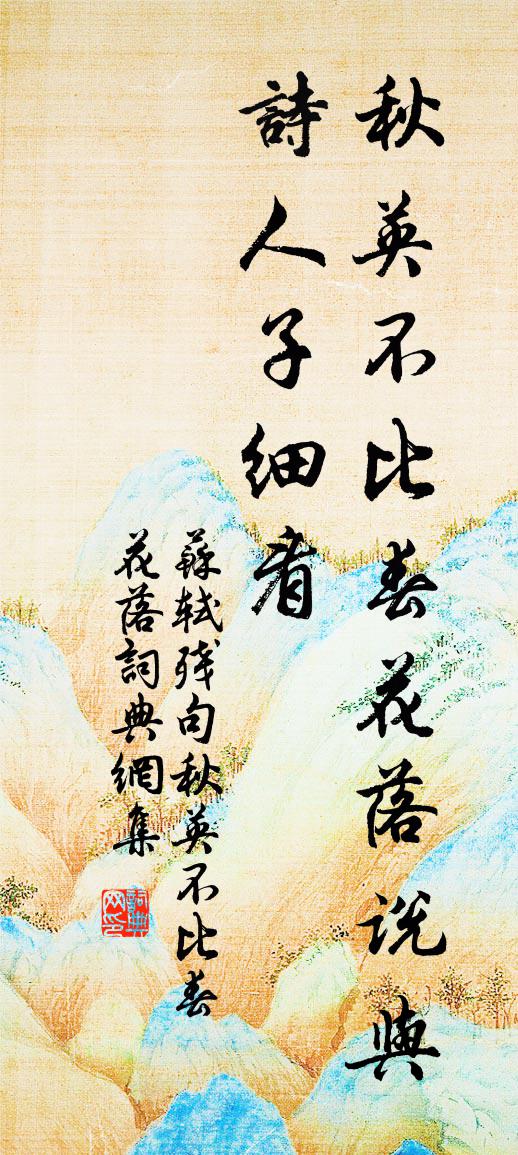 秋英不比春花落説與
詩人子細看
蘇軾殘句秋英不比春
花落詞典網集
詞典
网印